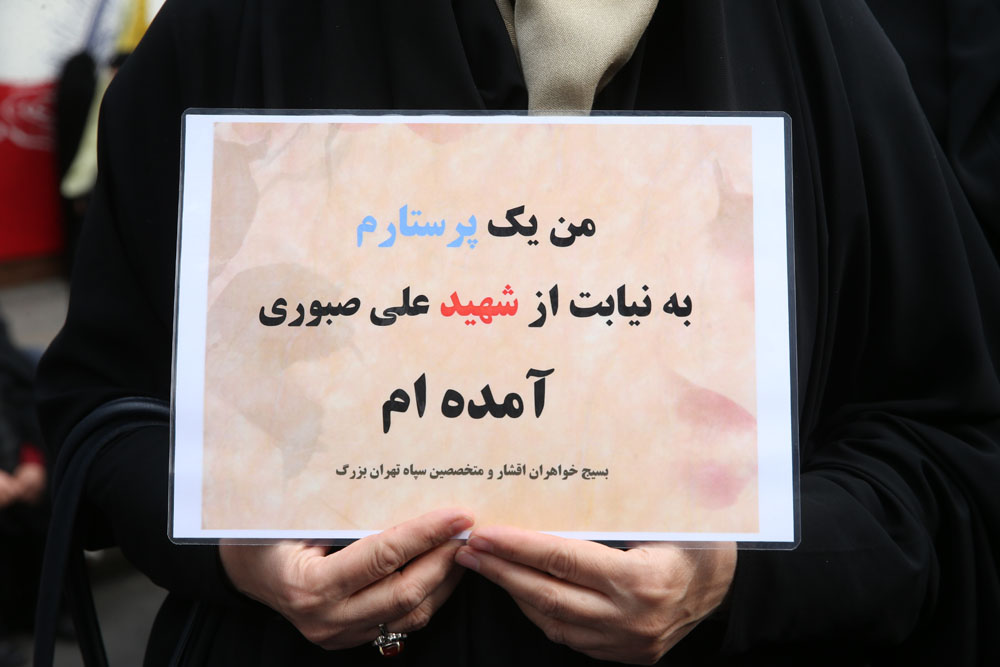 من یک پرستارم
به نیابت از شهید علی صبوری
آمده ام
بسیج خواهران اقشار و متخصصین سپاه تهران بزرگ